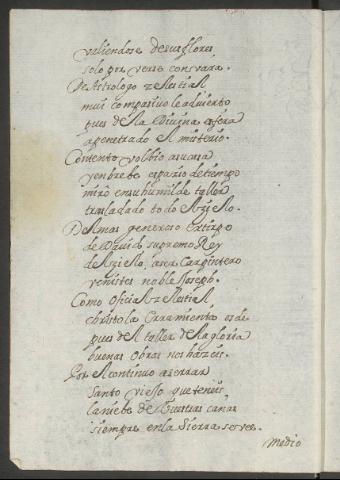 valiendose de sus flores
solo por verse con vara.
De Astrologo zelestial
mui compasivo le advierto
pues de la Divina esfera
a penetrado el misterio.
Contento volbio a su casa
y en brebe espazio de tiempo
miró en su humilde taller
trasladado todo el Zielo.
Del mas generoso extirpo
de David supremo Rey
del Zielo, a ser Carpintero
venistes noble Joseph.
Como oficial zelestial
christo la erramienta os dé
pues del taller de la gloria
buenas obras nos hazeis.
Por el continuo aserrar
Santo viejo que teneis,
la niebe de vuestras canas
siempre en la Sierra se ve.
Medio